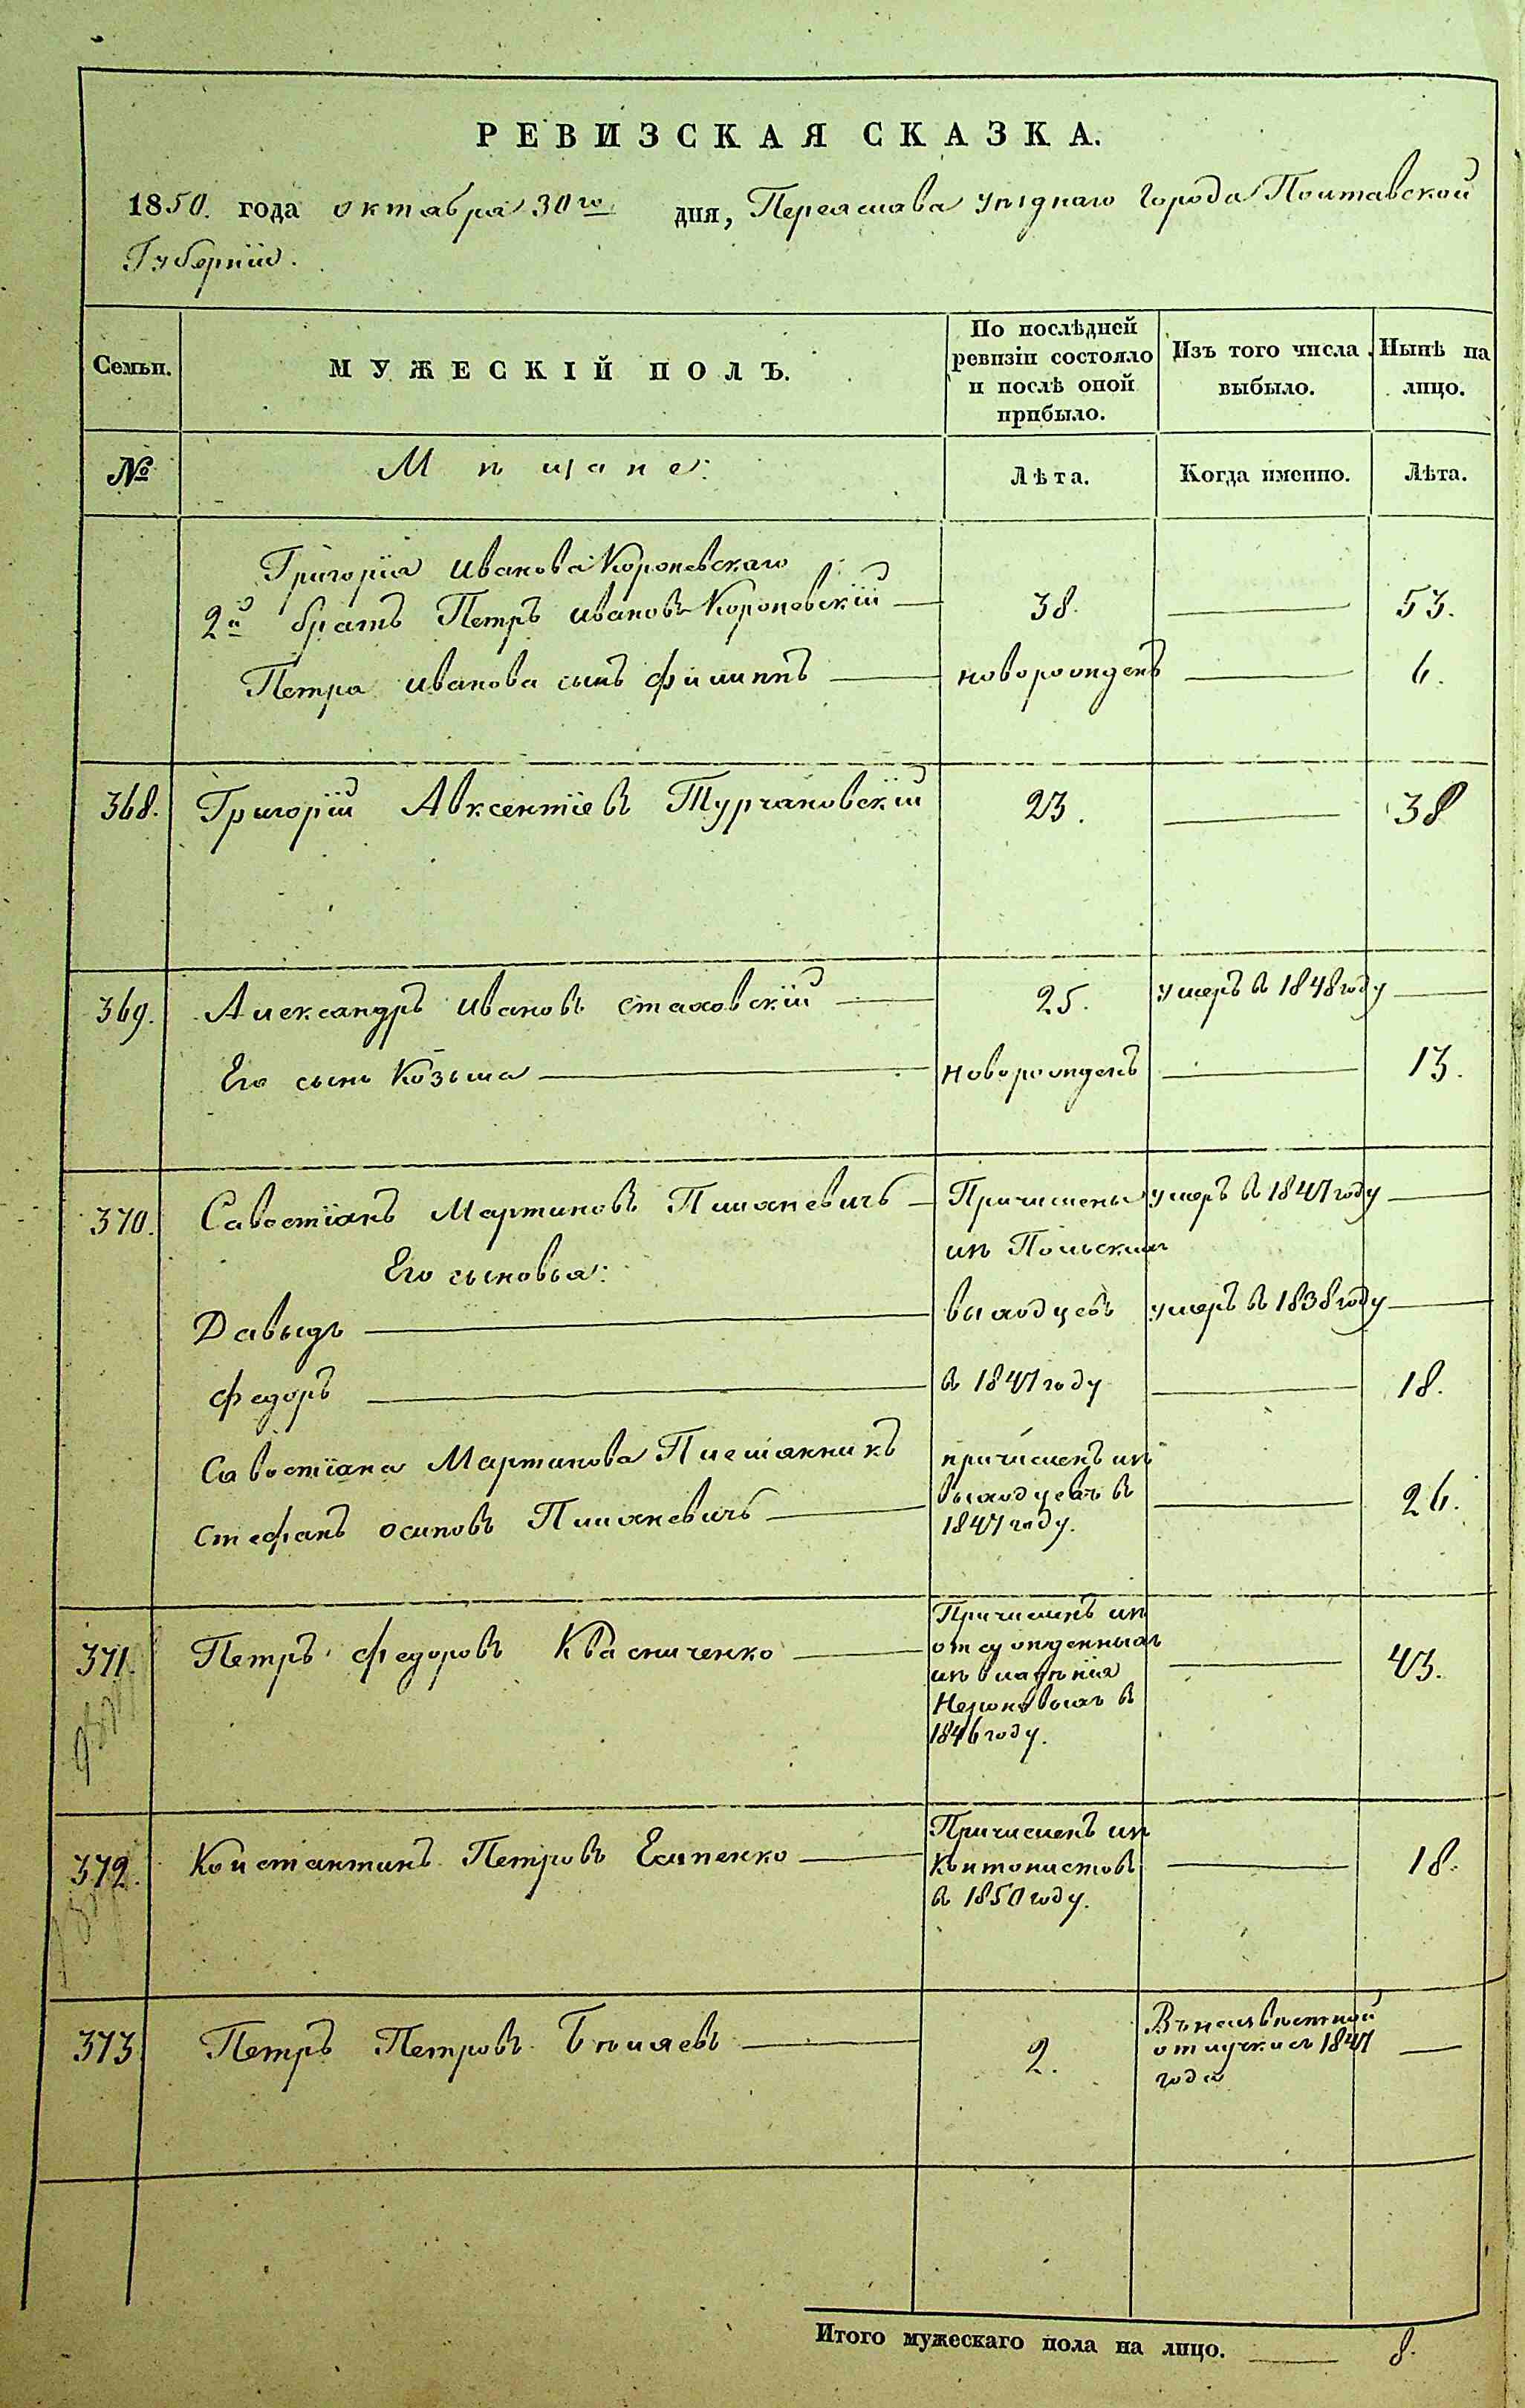 РЕВИЗСКАЯ СКАЗКА.
1850. года октября 30го дня, Переяслава уѣзднаго города Полтавской
Губерніи.
Семьи.
МУЖЕСКІЙ ПОЛЪ.
По послѣдней ревизіи состояло и послѣ оной прибыло.
Изъ того числа выбыло.
Нынѣ на лицо.
№
Мѣщане:
Лѣта.
Когда именно.
Лѣта.
Григорія Иванова Короневскаго
2й братъ Петръ Ивановъ Короневскій 38. 53.
Петра Иванова сынъ Филиппъ новорожденъ 6.
368. Григорій Авксентіевъ Турчановскій 23. 38
369. Александръ Ивановъ Стаховскій 25. умеръ в 1848 году
Его сынъ Козьма новорожденъ 13.
370. Савостіанъ Мартиновъ умеръ в 1847 году
Причислены
изъ Польскихъ
Его сыновья:
Давыдъ выходцевъ умеръ в 1838 году
Федоръ в 1847 году 18.
Савостіана Мартинова Племянникъ
Стефанъ Осиповъ 26.
причисленъ изъ
выходцевъ в
1847 году.
371. Петръ Федоровъ Квасниченко 43.
Причисленъ изъ
отсужденныхъ
изъ владѣнія
в
1846 году.
372. Константинъ Петровъ 18.
Причисленъ изъ
Кантонистовъ
в 1850 году.
373. Петръ Петровъ Бѣляевъ 2.
Въ неизвѣстной
отлучкѣ съ 1847
года
Итого мужескаго пола на лицо. 8.